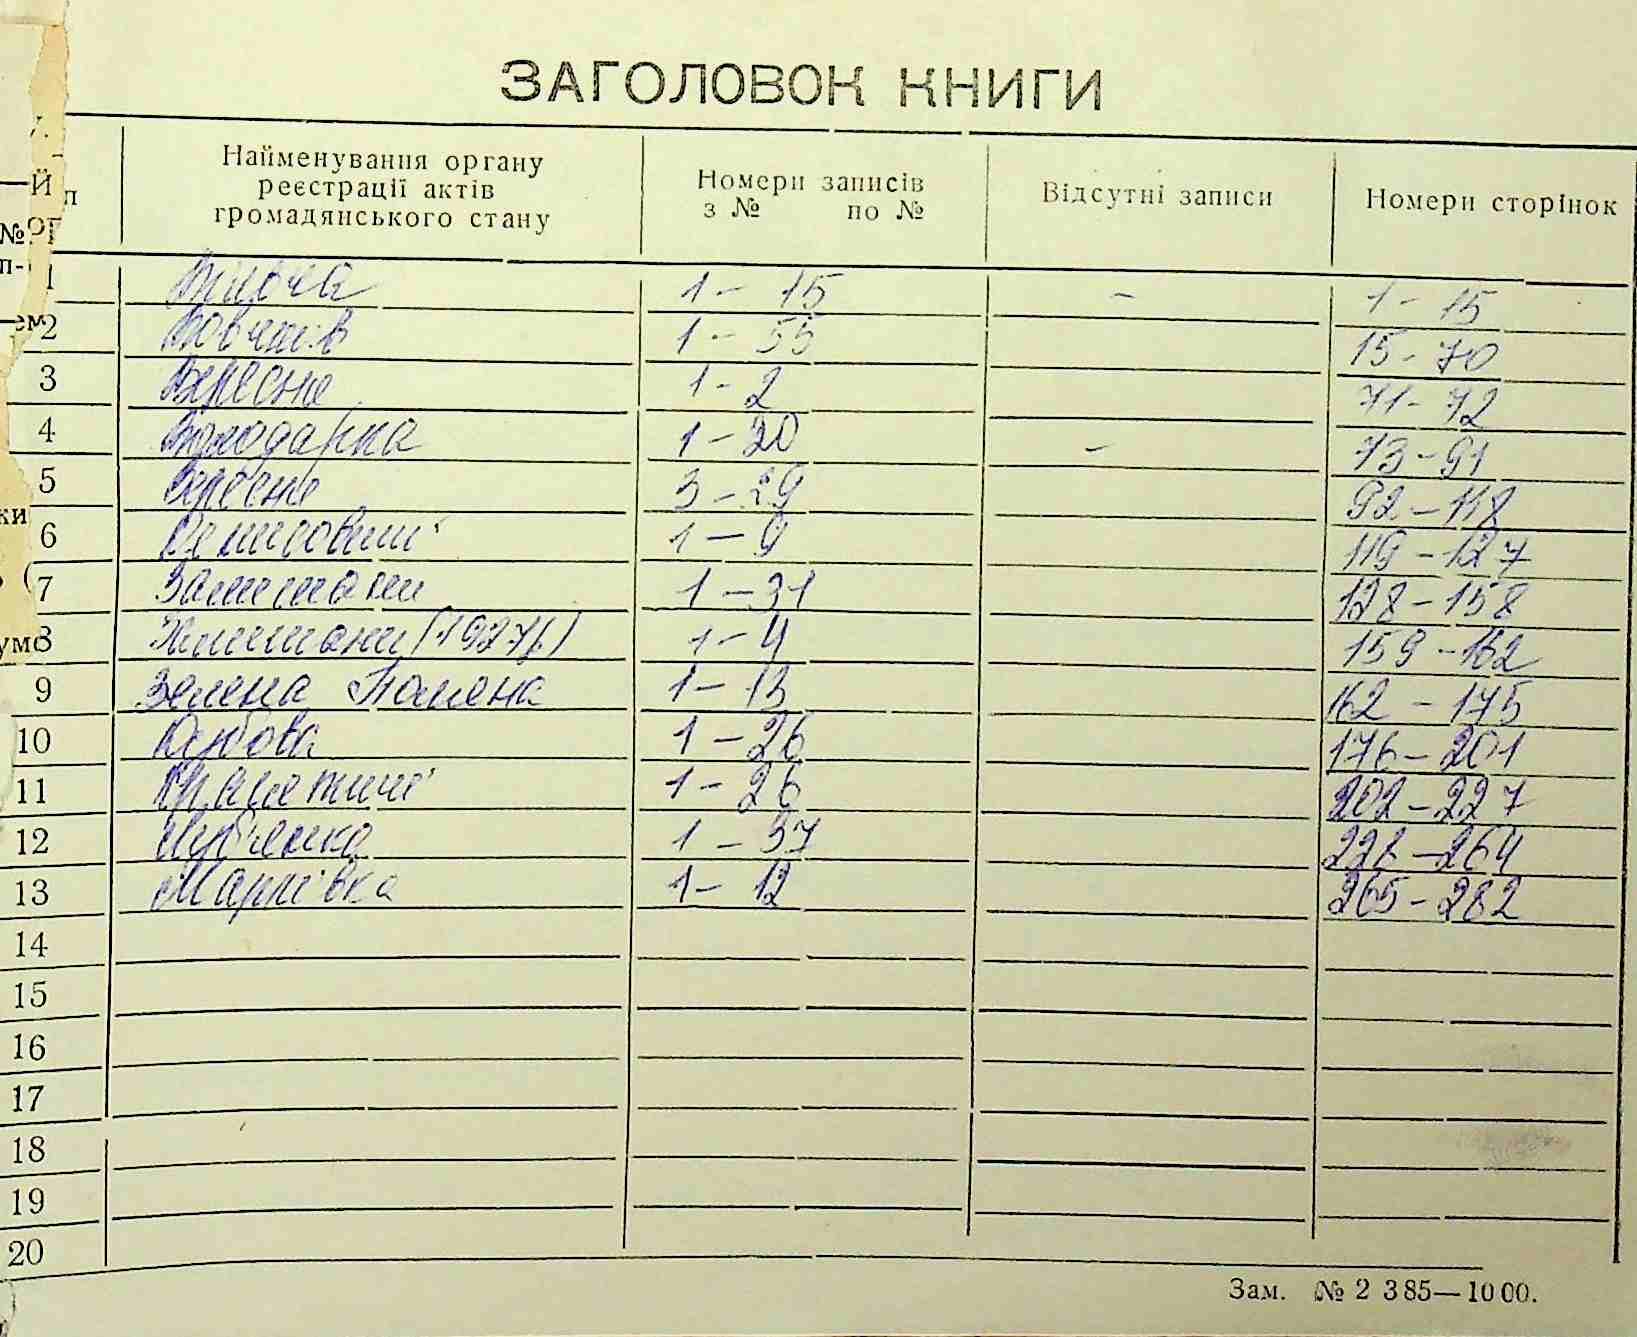 ЗАГОЛОВОК КНИГИ
Найменування органу реєстрації актів громадянського стану
Номери записів з № по №
Відсутні записи
Номери сторінок
1 1 - 15 - 1 - 15
2 Вовчків 1 - 55 15 - 70
3 Вересне 1 - 2 71 - 72
4 Володарка 1 - 20 - 73 - 91
5 Вересне 3 - 29 92 - 118
6 1 - 9 119 - 127
7 Залишани 1 - 31 128 - 158
8 (1927р.) 1 - 4 159 - 162
9 Зелена Поляна 1 - 13 162 - 175
10 Дубова 1 - 26 176 - 201
11 1 - 26 202 - 227
12 1 - 37 228 - 264
13 Мар'янівка 1 - 12 265 - 282
14
15
16
17
18
19
20
Зам. № 2 385—1000.